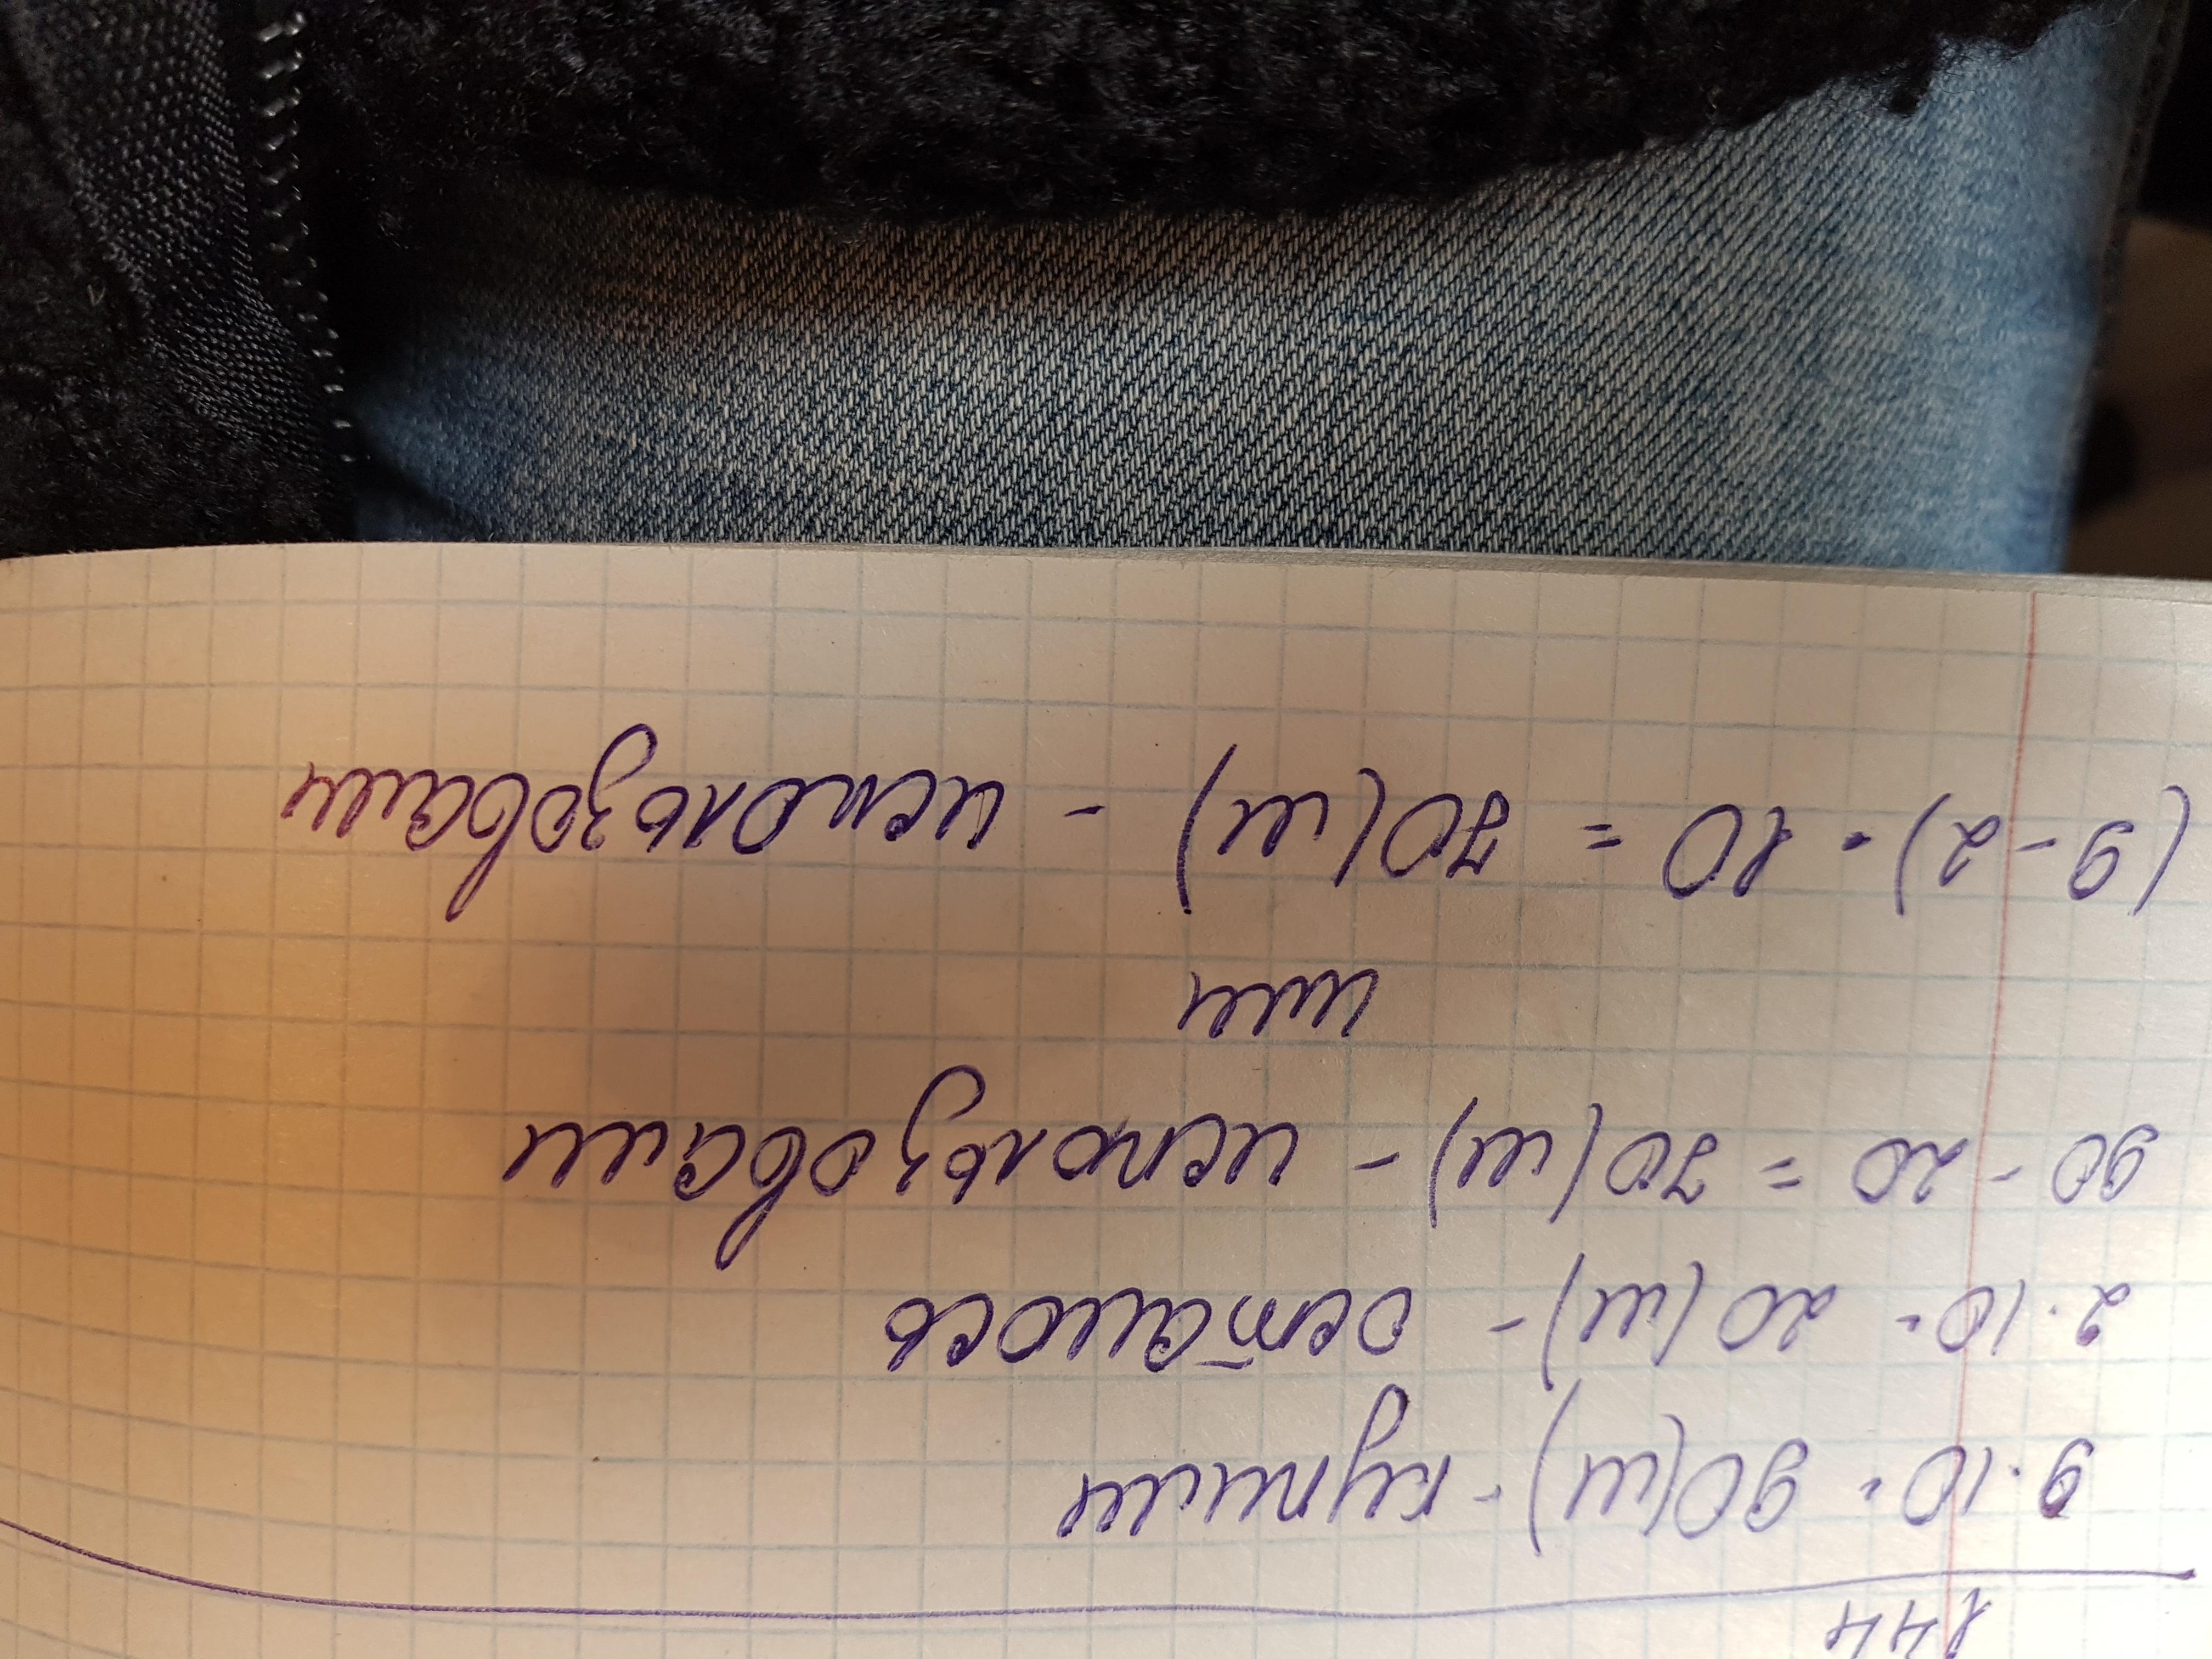 144
9·10=90(ш)-купили
2·10=20(ш)- осталось
90-20=70(ш)-использовали
или
(9-2)·10=70(ш)-использовали